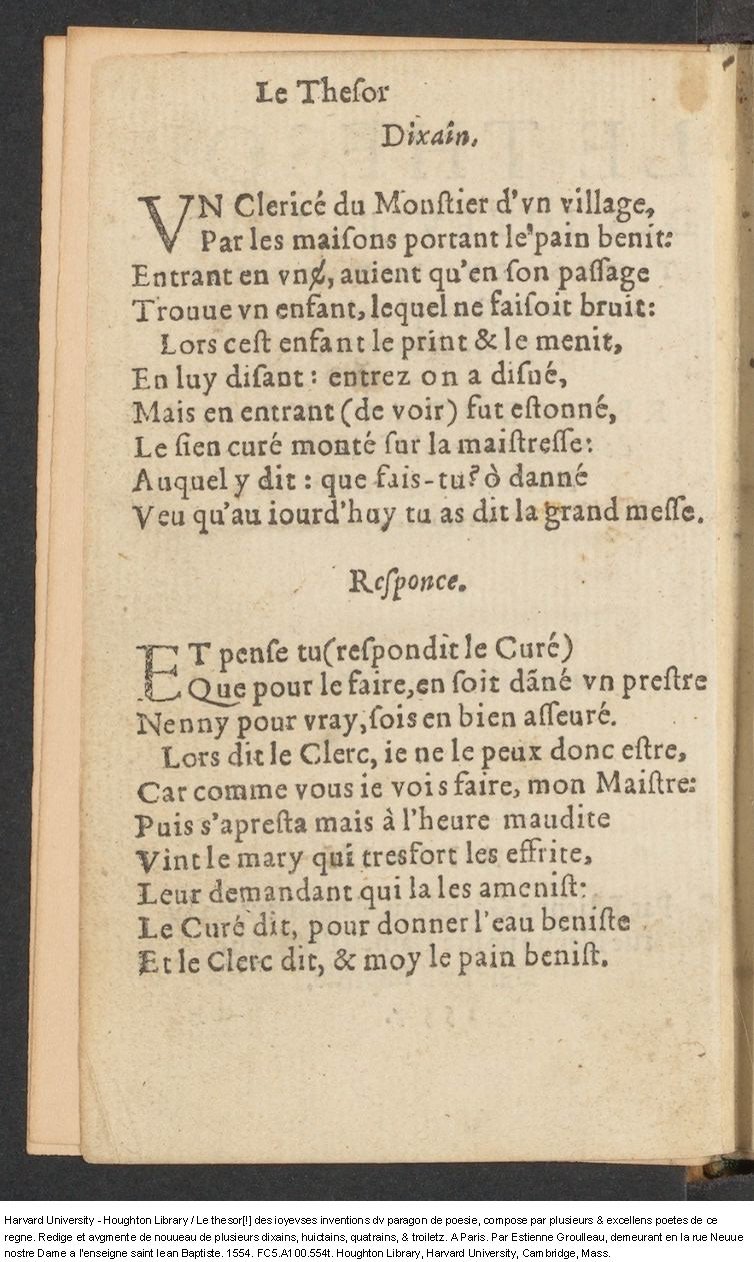 Le Theſor
Dixain.
VN Clericé du Monſtier d'vn village,
Par les maiſons portant le pain benit:
Entrant en vn&#x0247;, auient qu'en ſon paſſage
Trouue vn enfant, lequel ne faiſoit bruit:
Lors ceſt enfant le print & le menit,
En luy diſant : entrez on a diſné,
Mais en entrant (de voir) fut eſtonné,
Le ſien curé monté ſur la maiſtreſſe:
Auquel y dit : que fais-tu? ò danné
Veu qu'au iourd'huy tu as dit la grand meſſe.
Reſponce.
ET penſe tu (reſpondit le Curé)
Que pour le faire, en ſoit dãné vn preſtre
Nenny pour vray, ſois en bien aſſeuré.
Lors dit le Clerc, ie ne le peux donc eſtre,
Car comme vous ie vois faire, mon Maiſtre:
Puis s'apreſta mais à l'heure maudite
Vint le mary qui tresfort les effrite,
Leur demandant qui la les ameniſt:
Le Curé dit, pour donner l'eau beniſte
Et le Clerc dit, & moy le pain beniſt.
Harvard University - Houghton Library / Le thesor[!] des ioyevses inventions dv paragon de poesie, compose par plusieurs & excellens poetes de ce
regne. Redige et avgmente de nouueau de plusieurs dixains, huictains, quatrains, & troiletz. A Paris. Par Estienne Groulleau, demeurant en la rue Neuue
nostre Dame a l'enseigne saint Iean Baptiste. 1554. FC5.A100.554t. Houghton Library, Harvard University, Cambridge, Mass.